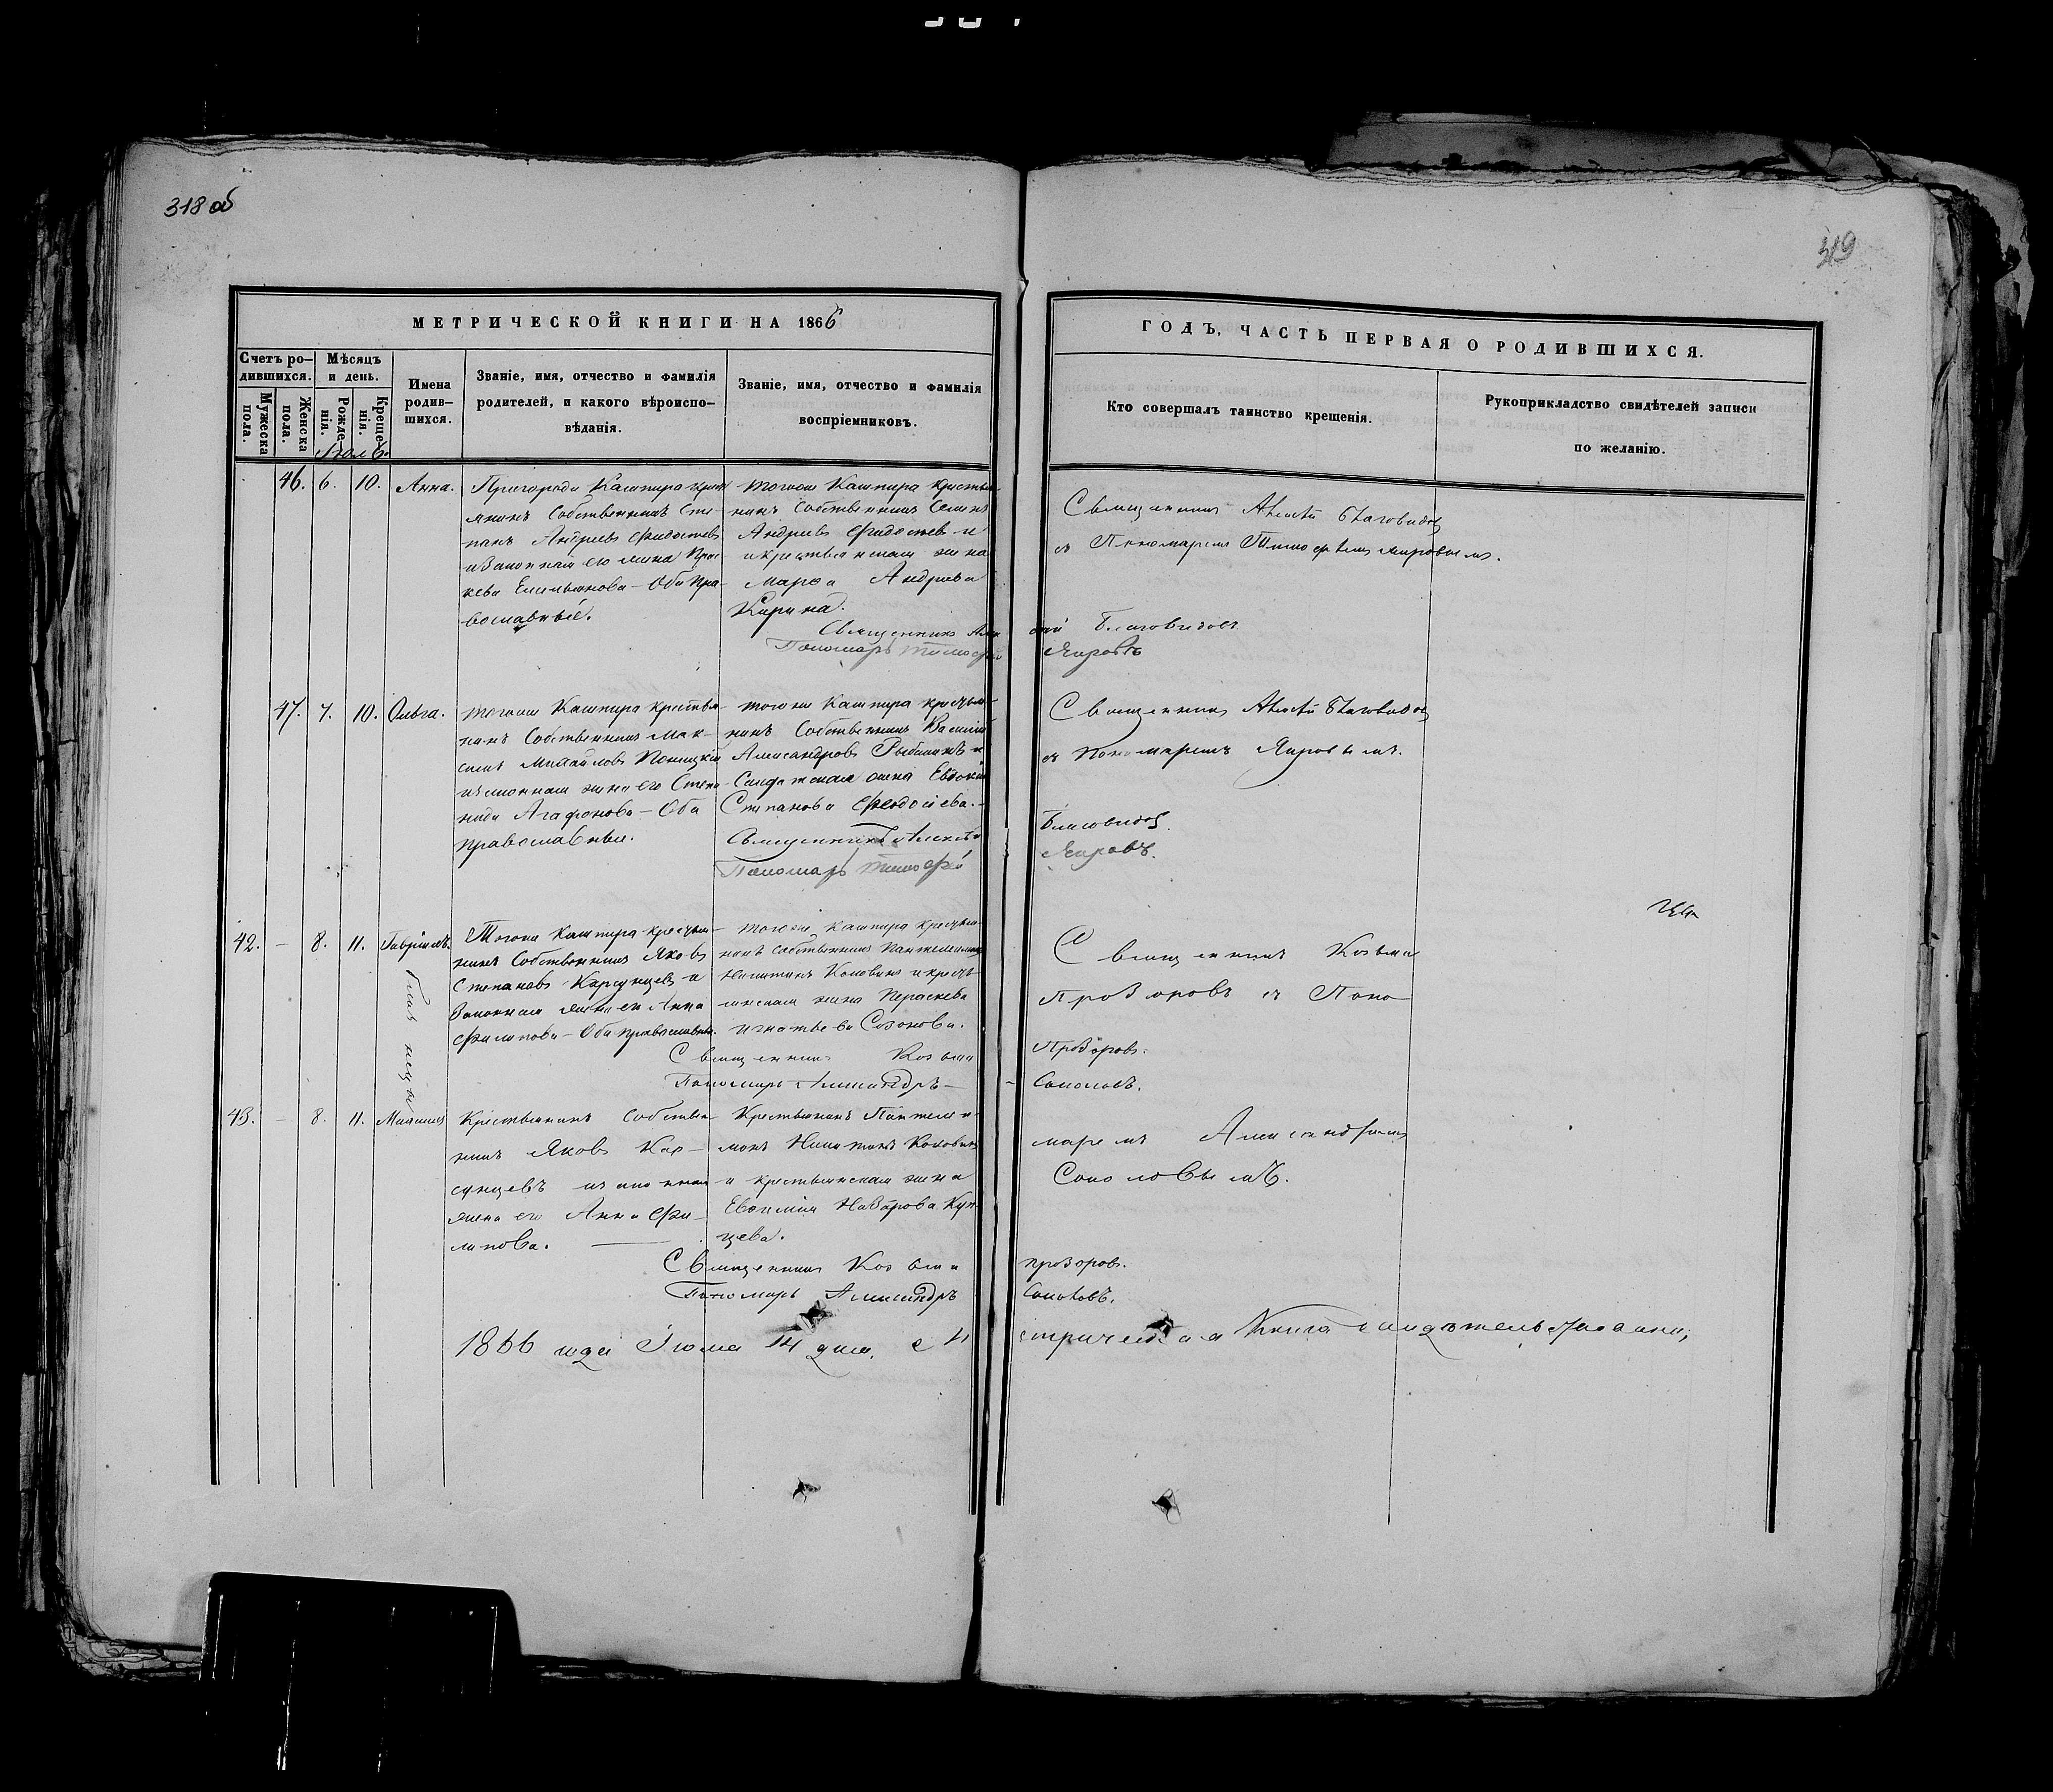 318 об
319
МЕТРИЧЕСКОЙ КНИГИ НА 1866
ГОДЪ, ЧАСТЬ ПЕРВАЯ О РОДИВШИХСЯ.
Счетъ ро-
дившихся.
Мужеска пола.
Женска пола.
Мѣсяцъ
и день.
Рожде-
нія.
Креще-
нія.
Имена
родив-
шихся.
Званіе, имя, отчество и фамилія
родителей, и какого вѣроиспо-
вѣданія.
Званіе, имя, отчество и фамилія
воспріемниковъ.
Кто совершалъ таинство крещенія.
Рукоприкладство свидѣтелей записи
по желанію.
46. 6. 10. Анна.
Пригорода Кашпира крест
янинъ Собственникъ Сте-
панъ Андреевъ
и законная его жена Прас
кева Емельянова - Оба пра-
вославные.
тогоже Кашпира крестья-
нинъ Собственникъ Семенъ
Андреевъ и
крестьянская жена
Марѳа Андреева
Карина.
Священникъ Алексѣй Благовидов
съ Пономаремъ Тимофеемъ Яировымъ.
Священникъ Алексѣй Благовидовъ
Пономарь Тимофей Яировъ
47. 7. 10. Ольга.
тогоже Кашпира крестья-
нинъ Собственникъ Мак-
симъ Михайловъ
и законная жена его Степа-
нида Агафонова - Оба
православные.
тогоже Кашпира крестья-
нинъ Собственникъ Василій
Александровъ Рыбкинъ и
Солдатская жена Евдокія
Степанова Феодосіева.
Священникъ Алексѣй Благовидов
съ Пономаремъ Яировымъ.
Священникъ Алексѣй Благовидов.
Пономарь Тимофей Яировъ.
42. - 8. 11. Гавріилъ.
Близнецы
Тогоже Кашпира крестья-
нинъ Собственникъ Яковъ
Степановъ Карсунцевъ и
Законная жена его Анна
Филипова - Оба православны.
тогоже Кашпира крестья-
нинъ Собственникъ Пантелеимонъ
Никитинъ Коновинъ и кресть-
янская жена Пераскева
Игнатьева Созонова.
Священникъ Козьма
Прозоровъ съ Поно-
Священникъ Козьма Прозоровъ.
Пономарь Александръ - Соколовъ.
43. - 8. 11. Михаилъ
Крестьянинъ Собствен-
никъ Яковъ Кар-
сунцевъ и законная
жена его Анна Фи-
липова.
Крестьянинъ Пантелеи-
монъ Никитинъ Коновинъ
и крестьянская жена
Евѳимія Назарова Куп-
цева.
маремъ Александромъ
Соколовымъ.
Священникъ Козьма Прозоровъ.
Пономарь Александръ Соколовъ.
1866 года Іюля 14 дня.